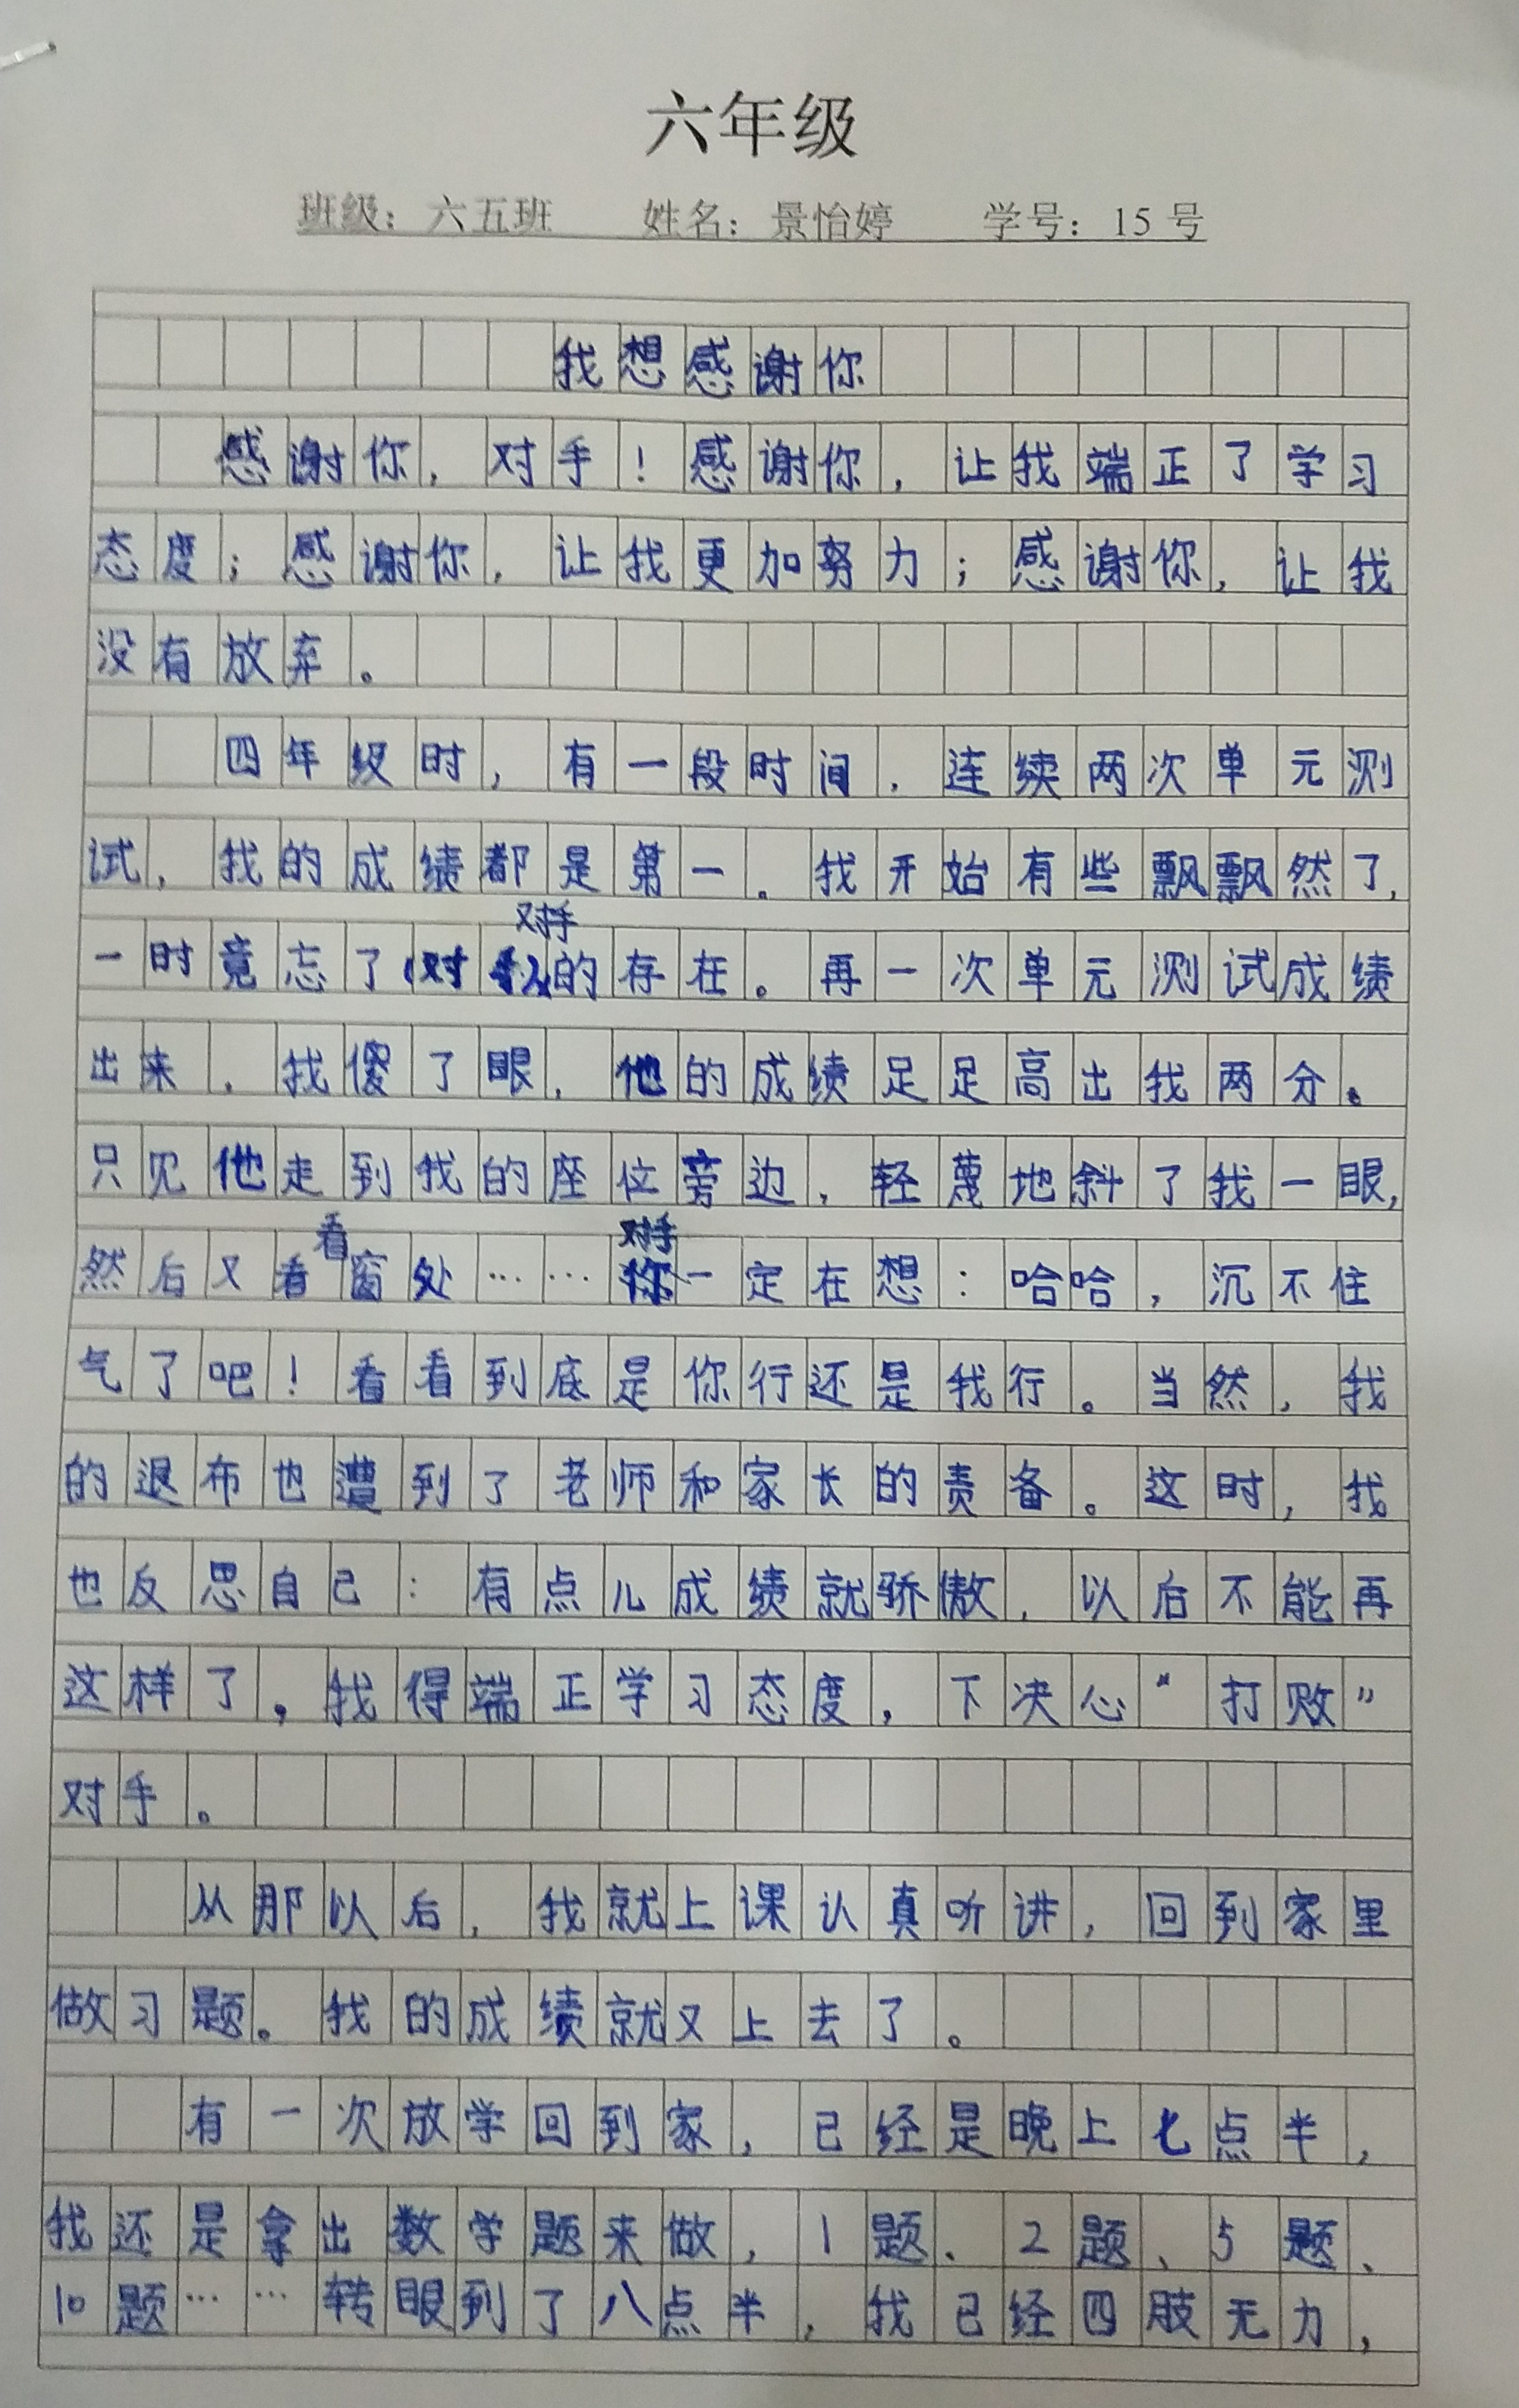 六年级
班级：六五班 姓名：景怡婷 学号：15 号
我想感谢你
感谢你，对手！感谢你，让我端正了学习
态度；感谢你，让我更加努力；感谢你，让我
没有放弃。
四年级时，有一段时间，连续两次单元测
试，我的成绩都是第一。我开始有些飘飘然了，
一时竟忘了对手的存在。再一次单元测试成绩
出来，我傻了眼，他的成绩足足高出我两分。
只见他走到我的座位旁边，轻蔑地斜了我一眼，
然后又看看窗处……对手一定在想：哈哈，沉不住
气了吧！看看到底是你行还是我行。当然，我
的退布也遭到了老师和家长的责备。这时，我
也反思自己：有点儿成绩就骄傲，以后不能再
这样了。我得端正学习态度，下决心“打败”
对手。
从那以后，我就上课认真听讲，回到家里
做习题。我的成绩就又上去了。
有一次放学回到家，已经是晚上七点半，
我还是拿出数学题来做，1题、2题、5题、
10题……转眼到了八点半，我已经四肢无力，